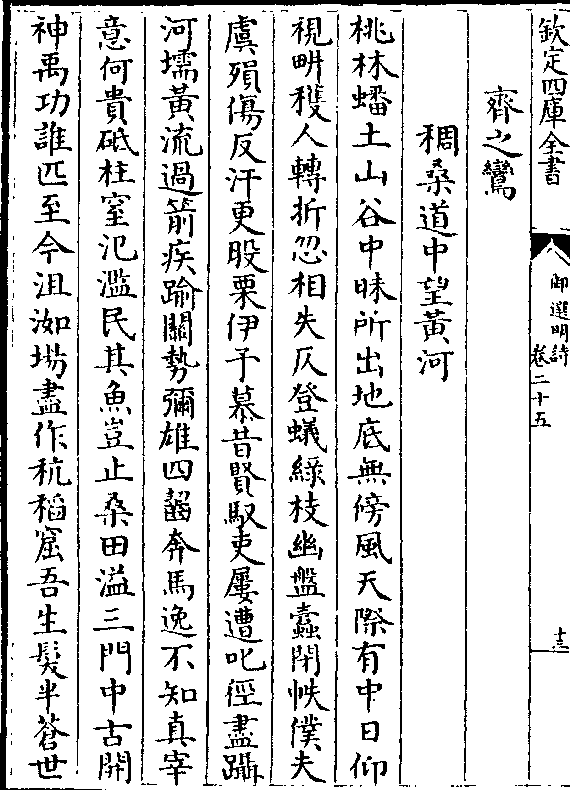 欽定四庫全書
御選明詩
卷二十五
十三
齊之鸞
稠桑道中望黃河
桃林蟠土山谷中昧所出地底無傍風天際有中日仰
視畊穫人轉折忽相失仄登蟻綠枝幽盤蠹閉帙僕夫
虞殞傷反汗更股栗伊予慕昔賢馭吏屢遭叱徑盡躡
河壖黃流過箭疾踰關勢彌雄四齾奔馬逸不知真宰
意何貴砥柱窒氾濫民其魚豈止桑田溢三門中古開
神禹功誰匹至今沮洳場盡作秔稻窟吾生髮半蒼世